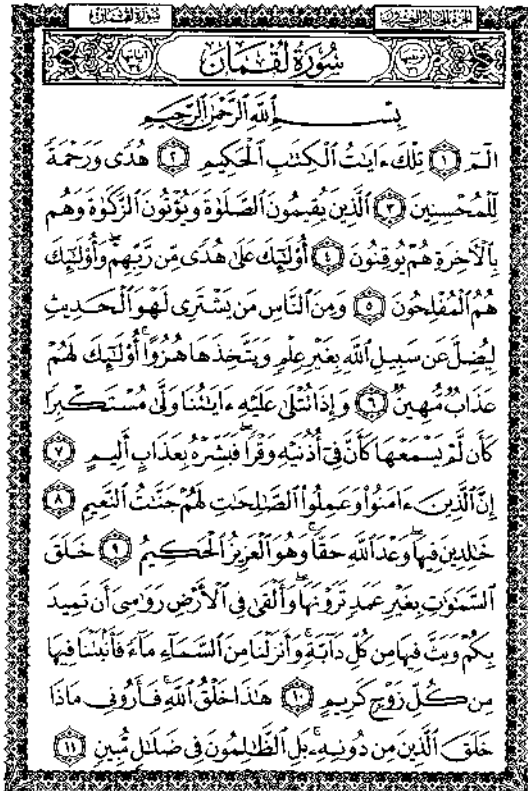 سُورَةُ لُقْمَان
الجزء الحادي والعشرون
سُورَةُ لُقْمَانَ
بِسْمِ ٱللَّهِ ٱلرَّحْمَٰنِ ٱلرَّحِيمِ
الٓمٓ ١ تِلْكَ ءَايَٰتُ ٱلْكِتَٰبِ ٱلْحَكِيمِ ٢ هُدًى وَرَحْمَةً
لِّلْمُحْسِنِينَ ٣ ٱلَّذِينَ يُقِيمُونَ ٱلصَّلَوٰةَ وَيُؤْتُونَ ٱلزَّكَوٰةَ وَهُم
بِٱلْأَخِرَةِ هُمْ يُوقِنُونَ ٤ أُوْلَٰٓئِكَ عَلَىٰ هُدًى مِّن رَّبِّهِمْ ۖ وَأُوْلَٰٓئِكَ
هُمُ ٱلْمُفْلِحُونَ ٥ وَمِنَ ٱلنَّاسِ مَن يَشْتَرِى لَهْوَ ٱلْحَدِيثِ
لِيُضِلَّ عَن سَبِيلِ ٱللَّهِ بِغَيْرِ عِلْمٍ وَيَتَّخِذَهَا هُزُوًا ۚ أُوْلَٰٓئِكَ لَهُمْ
عَذَابٌ مُّهِينٌ ٦ وَإِذَا تُتْلَىٰ عَلَيْهِ ءَايَٰتُنَا وَلَّىٰ مُسْتَكْبِرًا
كَأَن لَّمْ يَسْمَعْهَا كَأَنَّ فِىٓ أُذُنَيْهِ وَقْرًا ۖ فَبَشِّرْهُ بِعَذَابٍ أَلِيمٍ ٧
إِنَّ ٱلَّذِينَ ءَامَنُوا۟ وَعَمِلُوا۟ ٱلصَّٰلِحَٰتِ لَهُمْ جَنَّٰتُ ٱلنَّعِيمِ ٨
خَٰلِدِينَ فِيهَا ۖ وَعْدَ ٱللَّهِ حَقًّا ۚ وَهُوَ ٱلْعَزِيزُ ٱلْحَكِيمُ ٩ خَلَقَ
ٱلسَّمَٰوَٰتِ بِغَيْرِ عَمَدٍ تَرَوْنَهَا ۖ وَأَلْقَىٰ فِى ٱلْأَرْضِ رَوَٰسِىَ أَن تَمِيدَ
بِكُمْ وَبَثَّ فِيهَا مِن كُلِّ دَآبَّةٍ ۚ وَأَنزَلْنَا مِنَ ٱلسَّمَآءِ مَآءً فَأَنۢبَتْنَا فِيهَا
مِن كُلِّ زَوْجٍ كَرِيمٍ ١٠ هَٰذَا خَلْقُ ٱللَّهِ فَأَرُونِى مَاذَا
خَلَقَ ٱلَّذِينَ مِن دُونِهِۦ ۚ بَلِ ٱلظَّٰلِمُونَ فِى ضَلَٰلٍ مُّبِينٍ ١١